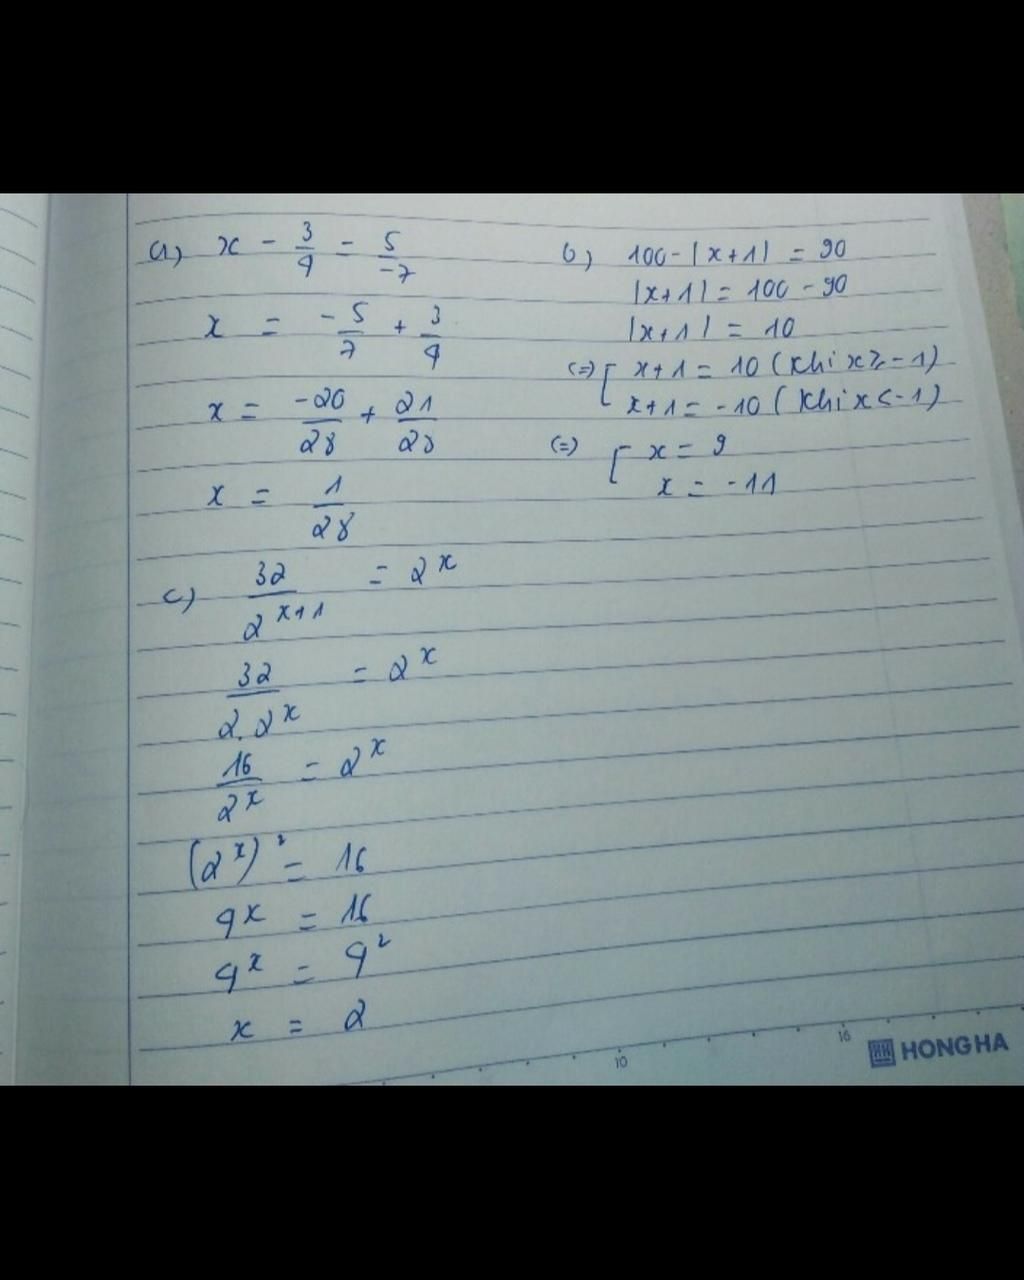 a) x - 3/4 = 5/-7
x = -5/7 + 3/4
x = -20/28 + 21/28
x = 1/28
b) 100 - |x+1| = 90
|x+1| = 100 - 90
|x+1| = 10
(=) [ x+1 = 10 (khi x ≥ -1)
x+1 = -10 (khi x < -1)
(=) [ x = 9
x = -11
c) 32/2^(x+1) = 2^x
32/(2.2^x) = 2^x
16/2^x = 2^x
(2^x)^2 = 16
4^x = 16
4^x = 4^2
x = 2
10 16
HONG HA